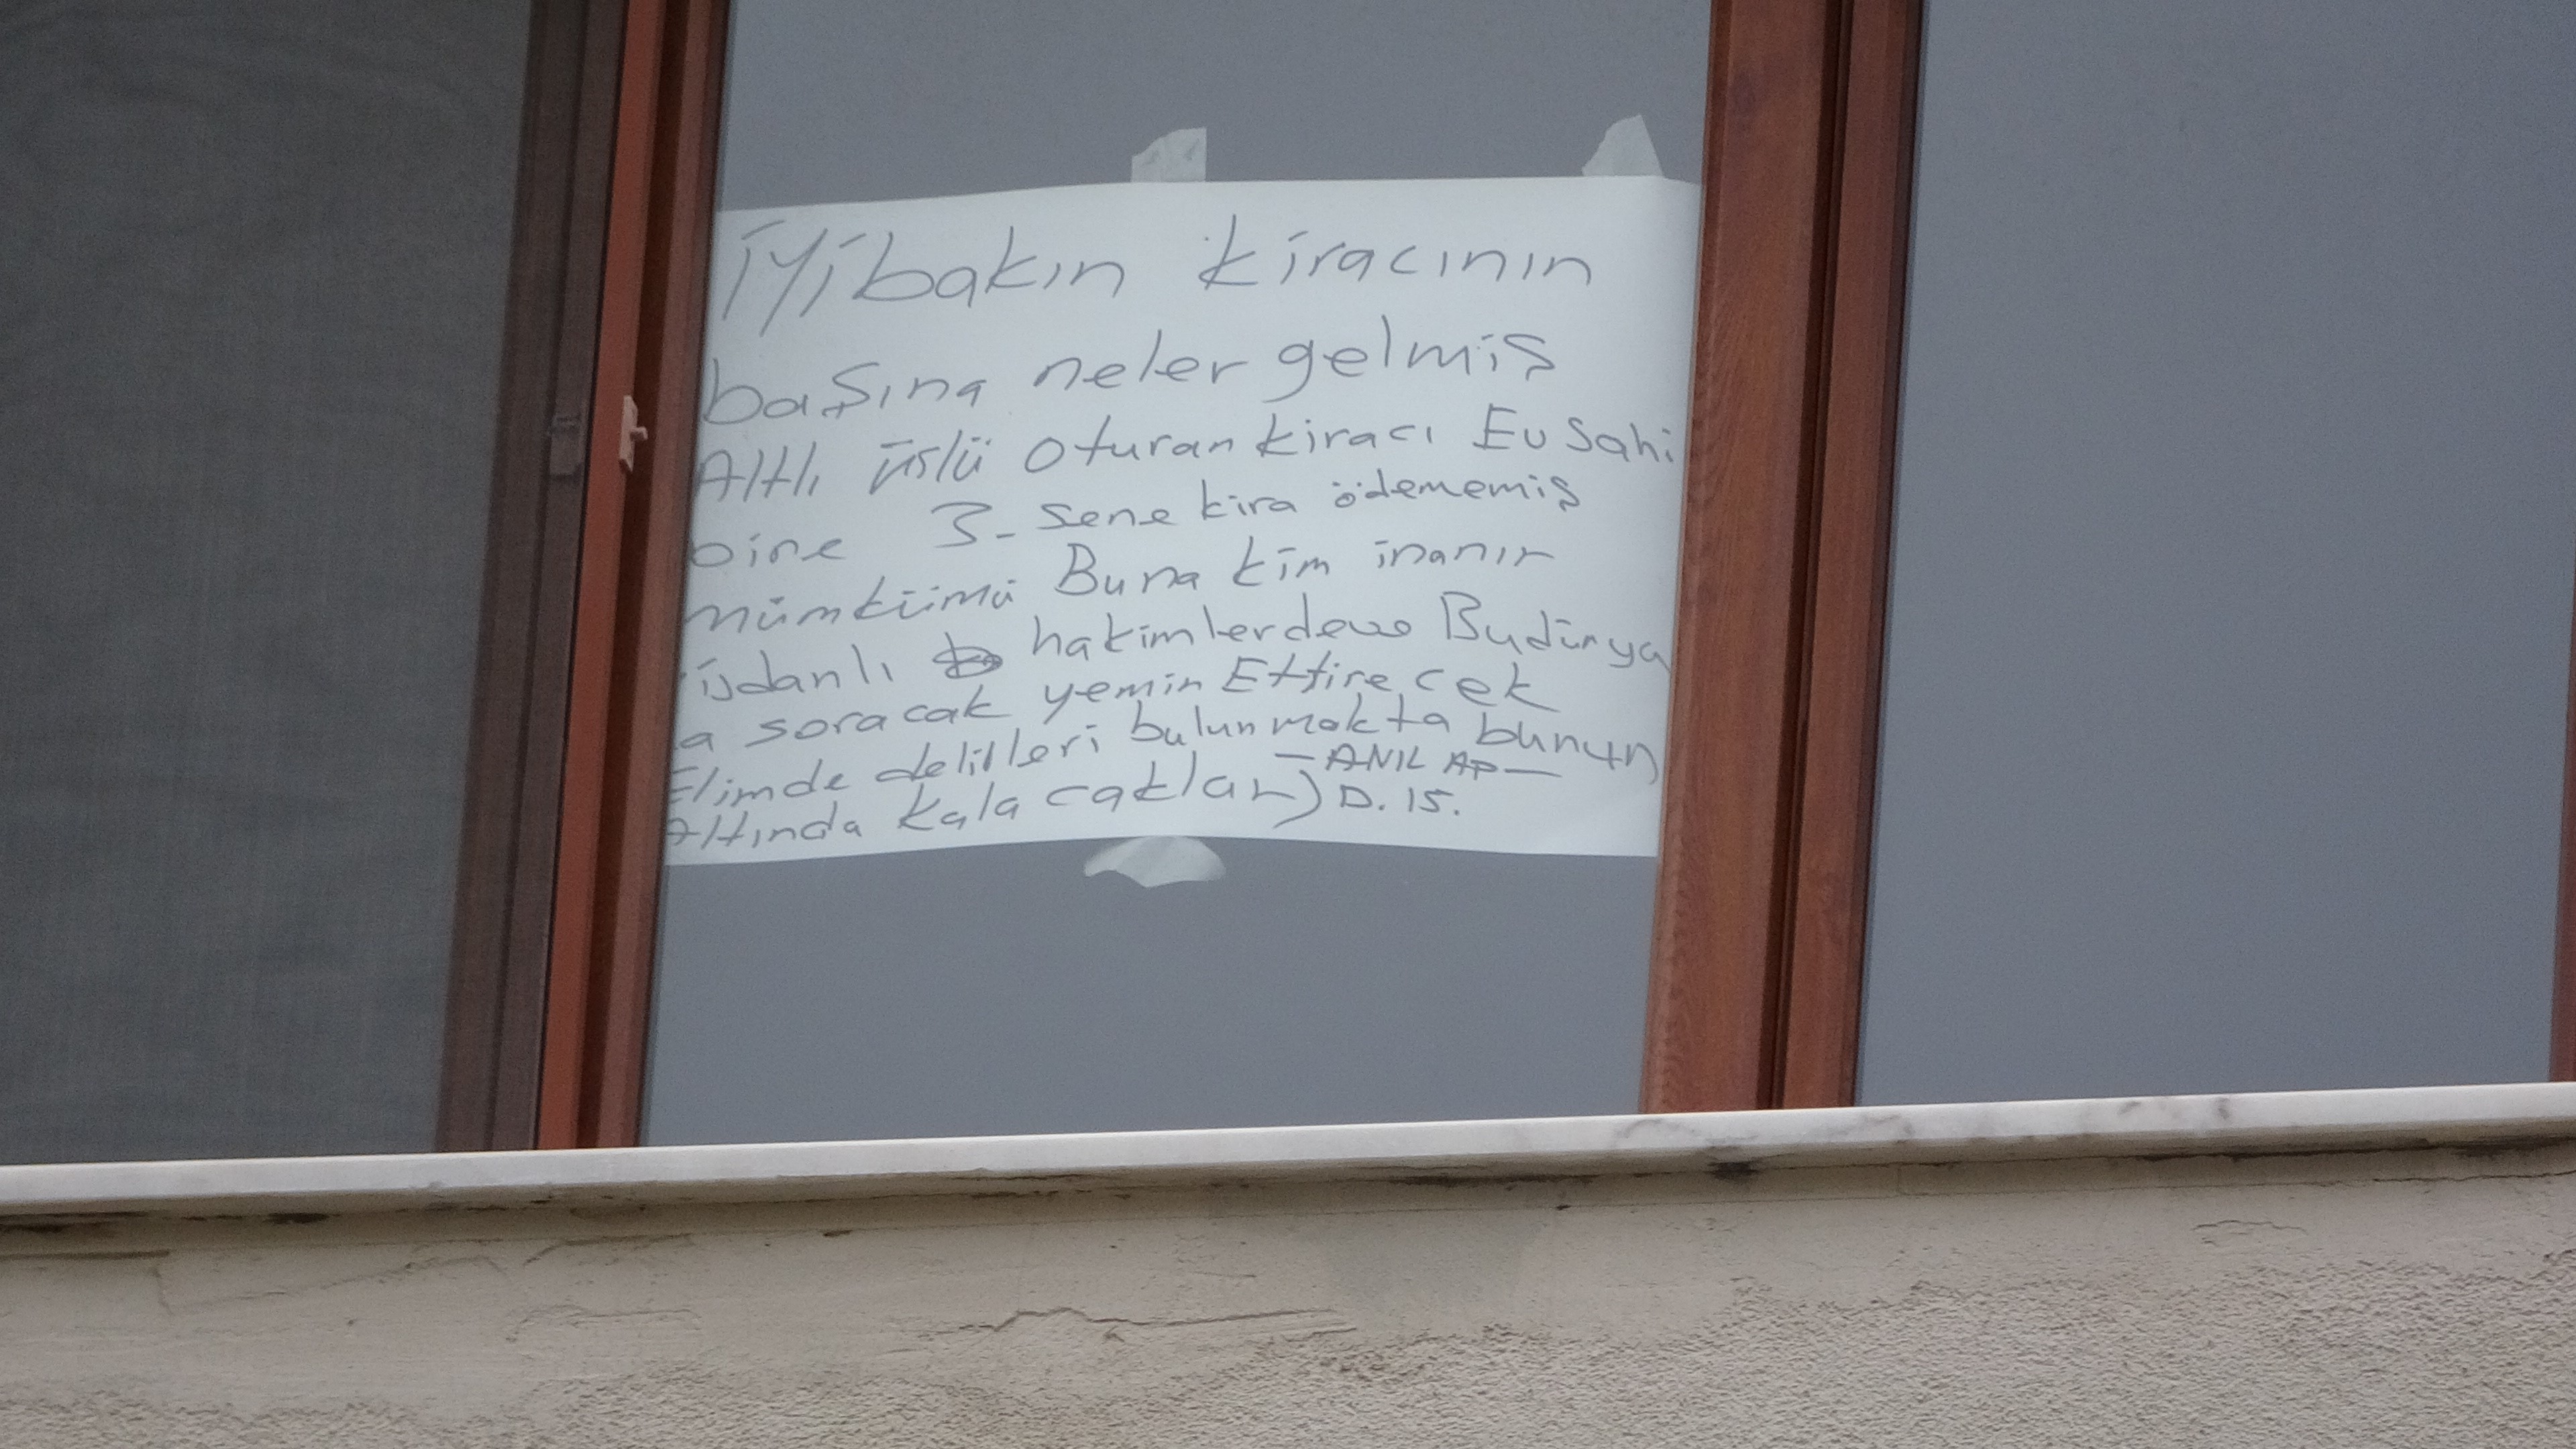 İyi bakın kiracının
başına neler gelmiş
Altlı üslü oturan kiracı Ev sahi
bine 3- sene kira ödememiş
mümkümü Buna kim inanır
vijdanlı hakimlerde Budünya
da soracak yemin Ettirecek
Elimde delilleri bulunmakta bunun
Altında kalacaklar) -ANIL AP-
D. 15.